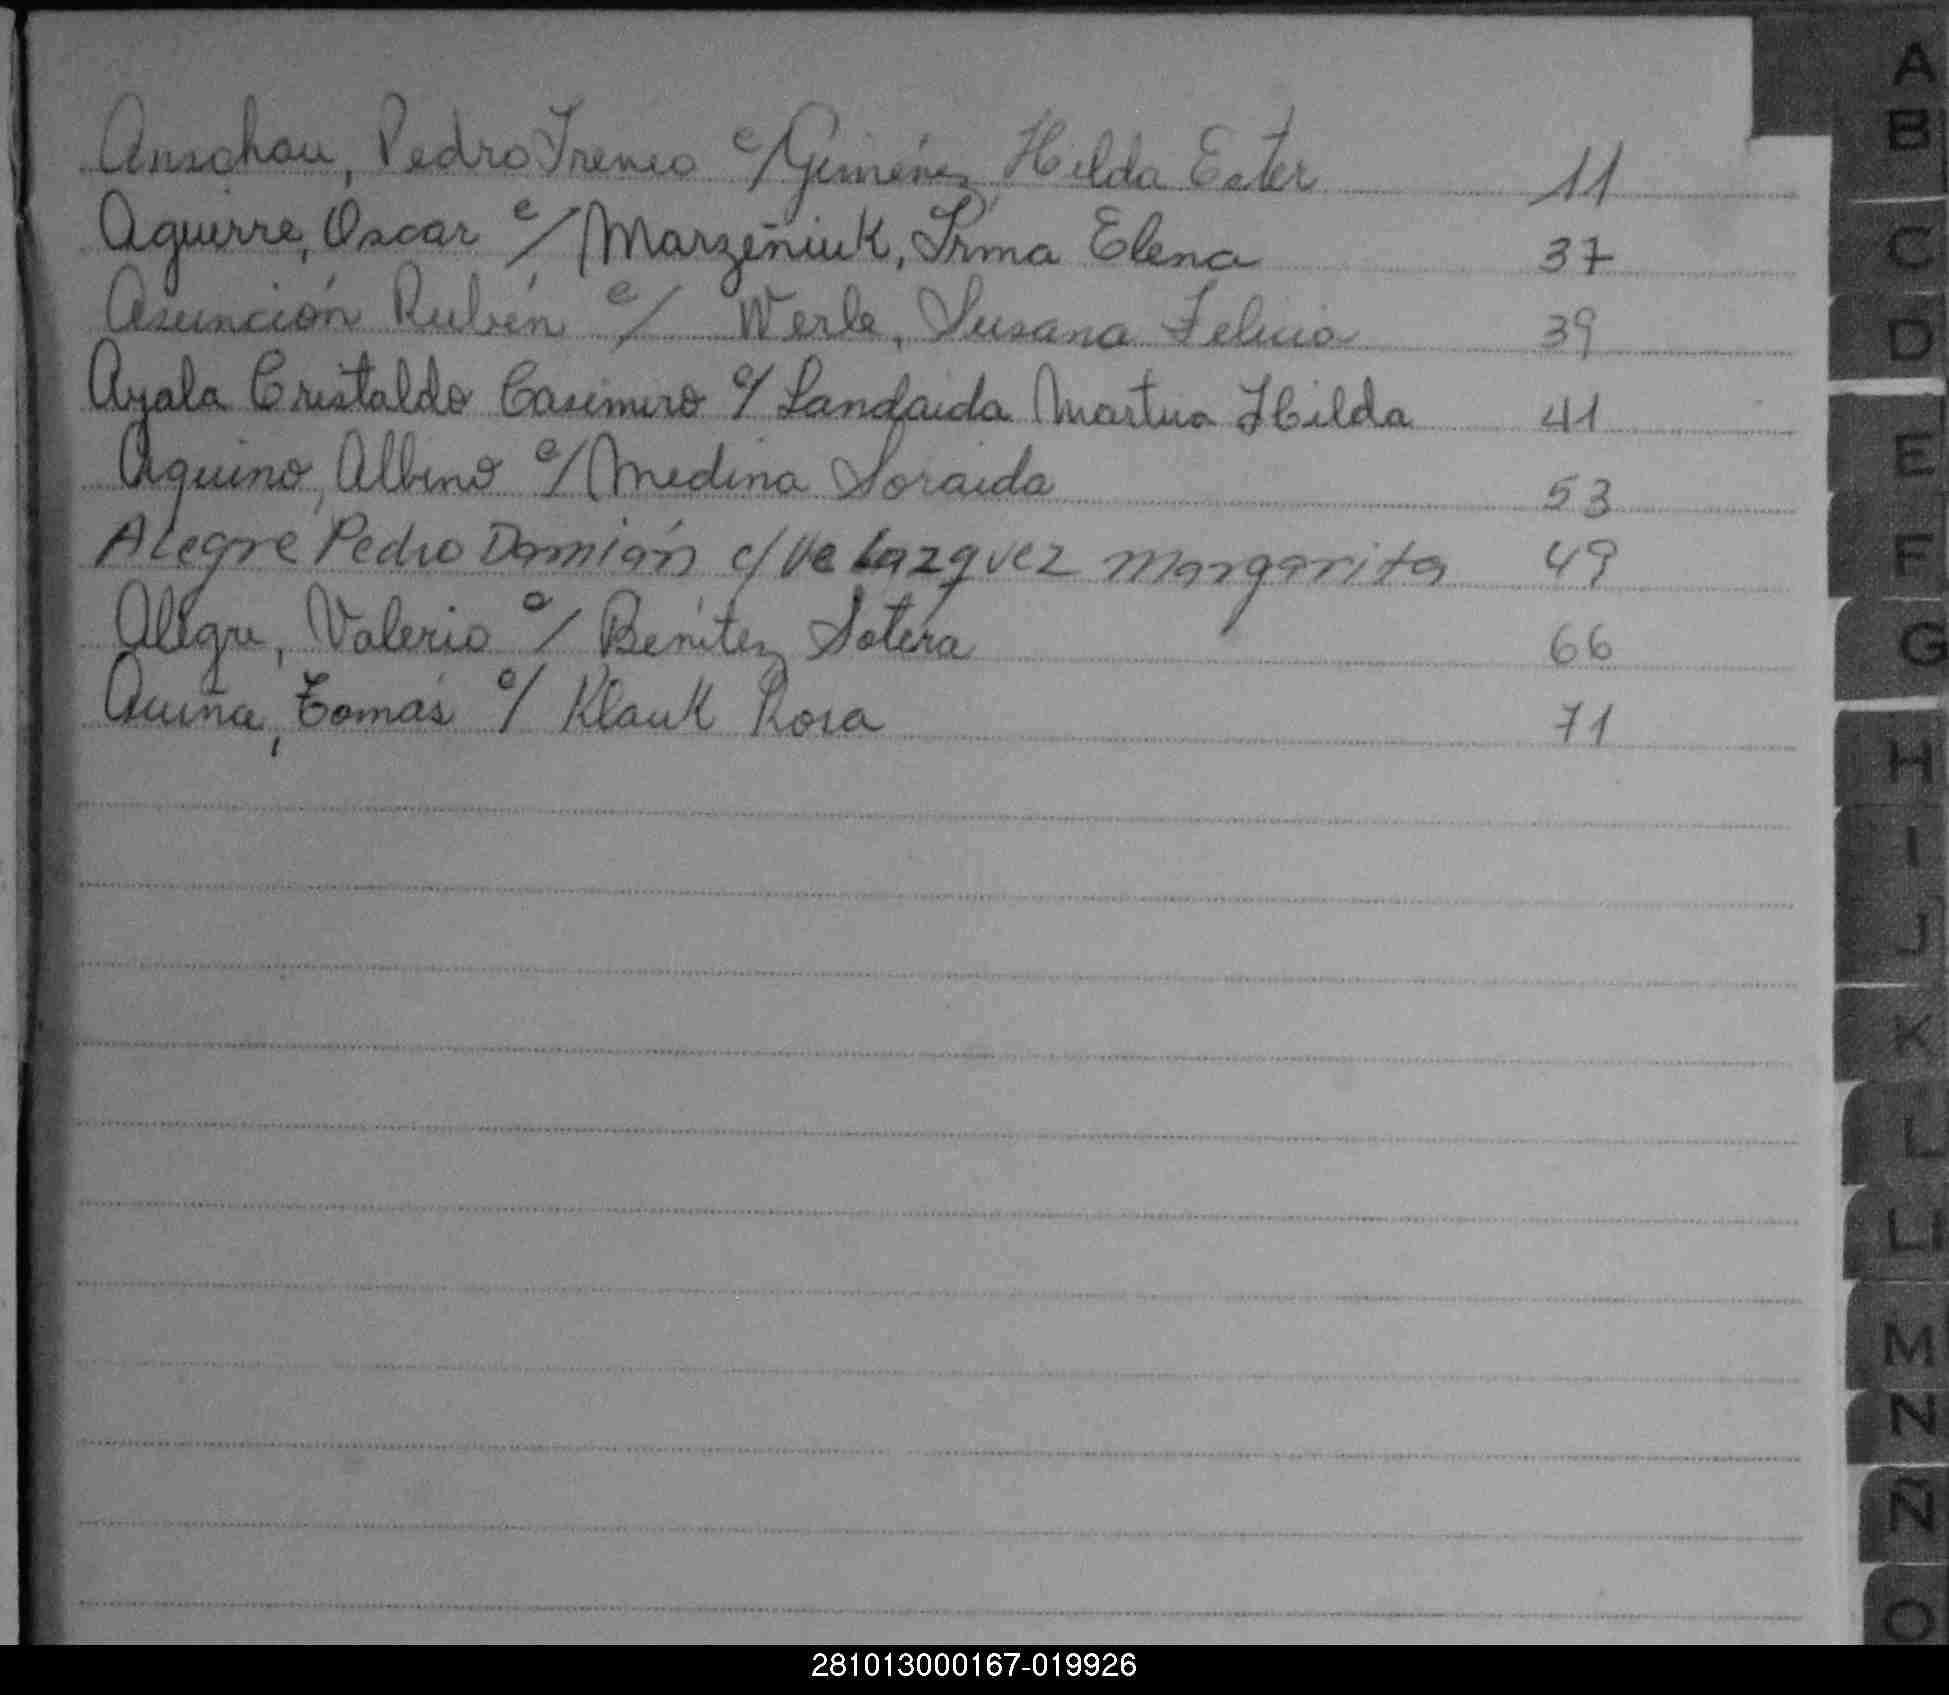 Anschau, Pedro Ireneo c/ Giménez Hilda Ester 11
Aguirre, Oscar c/ Marzeñiuk, Irma Elena 37
Asunción Rubén c/ Werle, Susana Felicia 39
Ayala Cristaldo Casimiro c/ Landaida Martua Hilda 41
Aquino, Albino c/ Medina Soraida 53
Alegre Pedro Damián c/ Velazquez Margarita 49
Alegre, Valerio c/ Benítez Sotera 66
Acuña, Tomás c/ Klauk Rosa 71
A
B
C
D
E
F
G
H
I
J
K
L
Ll
M
N
Ñ
O
281013000167-019926